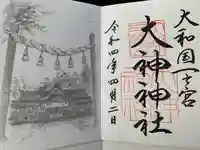 大和国一之宮
大神神社
令和四年四月二日